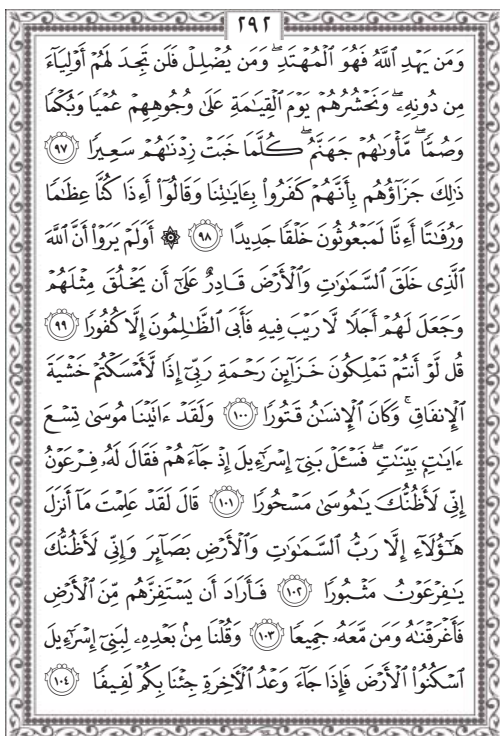 ٢٩٢
وَمَن يَهْدِ ٱللَّهُ فَهُوَ ٱلْمُهْتَدِ ۖ وَمَن يُضْلِلْ فَلَن تَجِدَ لَهُمْ أَوْلِيَآءَ
مِن دُونِهِۦ ۖ وَنَحْشُرُهُمْ يَوْمَ ٱلْقِيَـٰمَةِ عَلَىٰ وُجُوهِهِمْ عُمْيًا وَبُكْمًا
وَصُمًّا ۖ مَّأْوَىٰهُمْ جَهَنَّمُ ۖ كُلَّمَا خَبَتْ زِدْنَـٰهُمْ سَعِيرًا ٩٧
ذَٰلِكَ جَزَآؤُهُم بِأَنَّهُمْ كَفَرُوا۟ بِـَٔايَـٰتِنَا وَقَالُوٓا۟ أَءِذَا كُنَّا عِظَـٰمًا
وَرُفَـٰتًا أَءِنَّا لَمَبْعُوثُونَ خَلْقًا جَدِيدًا ٩٨ ۞ أَوَلَمْ يَرَوْا۟ أَنَّ ٱللَّهَ
ٱلَّذِى خَلَقَ ٱلسَّمَـٰوَٰتِ وَٱلْأَرْضَ قَادِرٌ عَلَىٰٓ أَن يَخْلُقَ مِثْلَهُمْ
وَجَعَلَ لَهُمْ أَجَلًا لَّا رَيْبَ فِيهِ فَأَبَى ٱلظَّـٰلِمُونَ إِلَّا كُفُورًا ٩٩
قُل لَّوْ أَنتُمْ تَمْلِكُونَ خَزَآئِنَ رَحْمَةِ رَبِّىٓ إِذًا لَّأَمْسَكْتُمْ خَشْيَةَ
ٱلْإِنفَاقِ ۚ وَكَانَ ٱلْإِنسَـٰنُ قَتُورًا ١٠٠ وَلَقَدْ ءَاتَيْنَا مُوسَىٰ تِسْعَ
ءَايَـٰتٍۭ بَيِّنَـٰتٍ ۖ فَسْـَٔلْ بَنِىٓ إِسْرَٰٓءِيلَ إِذْ جَآءَهُمْ فَقَالَ لَهُۥ فِرْعَوْنُ
إِنِّى لَأَظُنُّكَ يَـٰمُوسَىٰ مَسْحُورًا ١٠١ قَالَ لَقَدْ عَلِمْتَ مَآ أَنزَلَ
هَـٰٓؤُلَآءِ إِلَّا رَبُّ ٱلسَّمَـٰوَٰتِ وَٱلْأَرْضِ بَصَآئِرَ وَإِنِّى لَأَظُنُّكَ
يَـٰفِرْعَوْنُ مَثْبُورًا ١٠٢ فَأَرَادَ أَن يَسْتَفِزَّهُم مِّنَ ٱلْأَرْضِ
فَأَغْرَقْنَـٰهُ وَمَن مَّعَهُۥ جَمِيعًا ١٠٣ وَقُلْنَا مِنۢ بَعْدِهِۦ لِبَنِىٓ إِسْرَٰٓءِيلَ
ٱسْكُنُوا۟ ٱلْأَرْضَ فَإِذَا جَآءَ وَعْدُ ٱلْـَٔاخِرَةِ جِئْنَا بِكُمْ لَفِيفًا ١٠٤